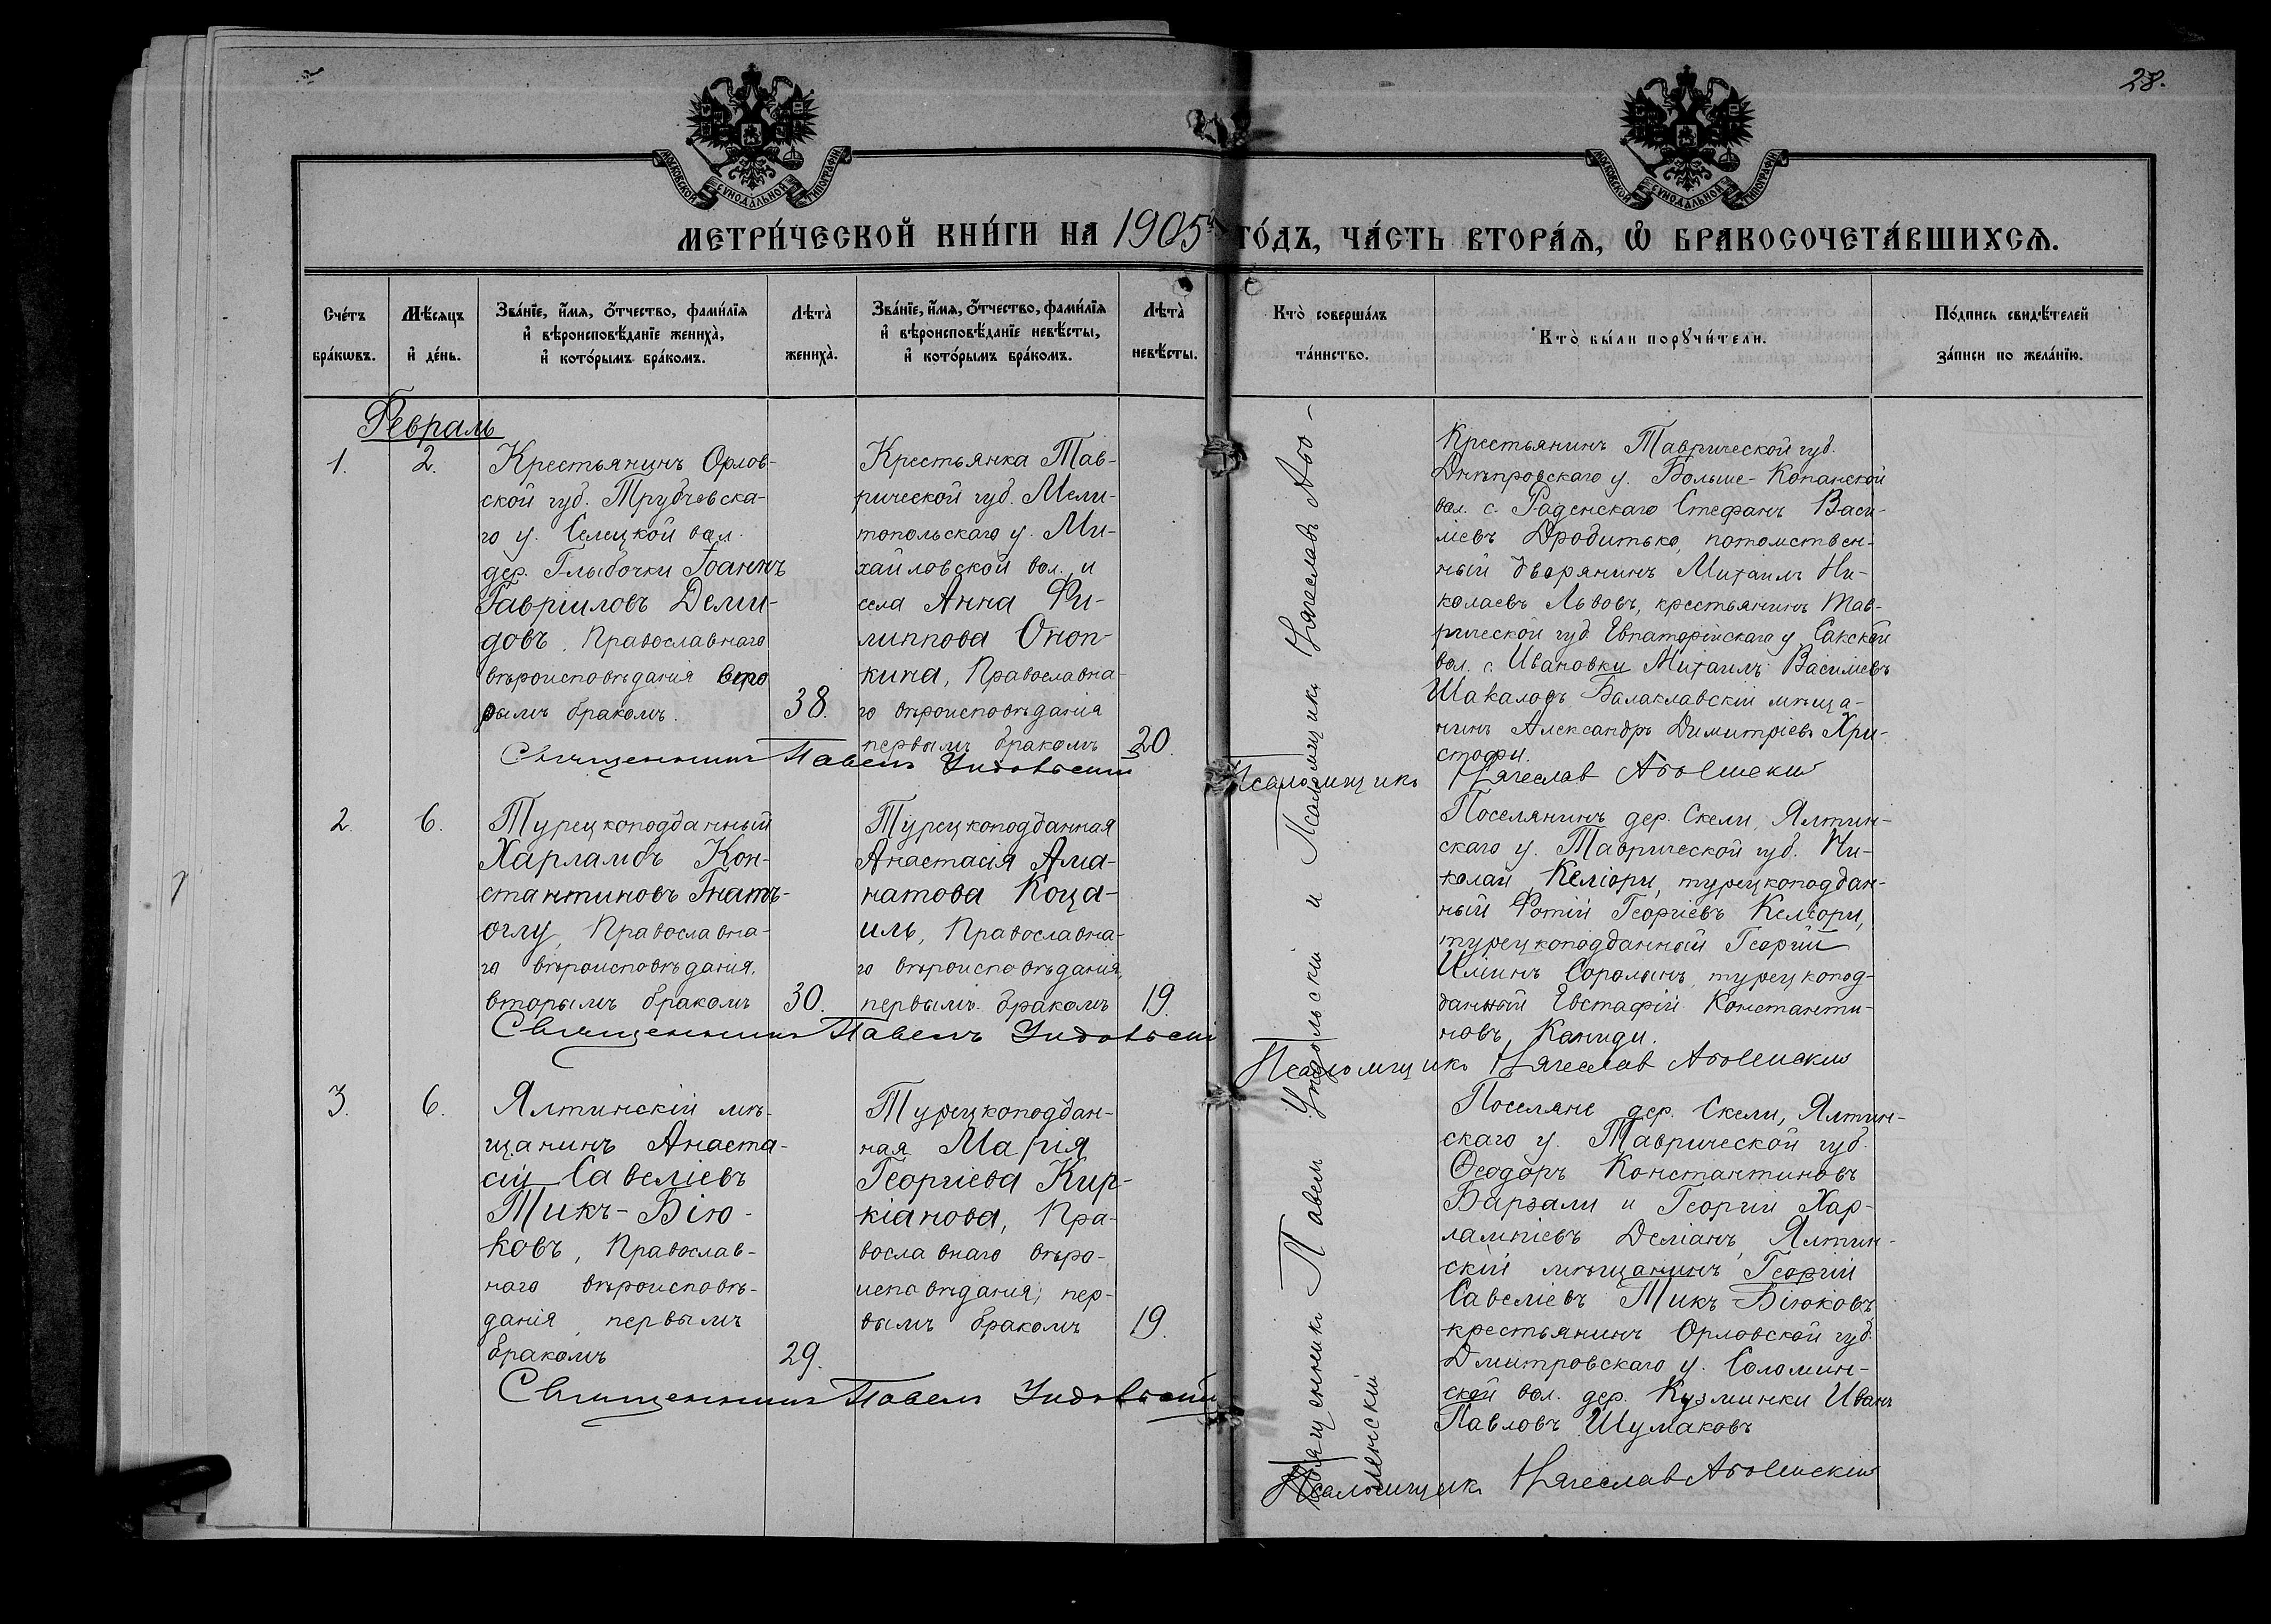 28.
МОСКОВСКОЙ СУНОДАЛЬНОЙ ТИПОГРАФІИ
МОСКОВСКОЙ СУНОДАЛЬНОЙ ТИПОГРАФІИ
МЕТРИ́ЧЕСКОЙ КНИ́ГИ НА 1905й ГО́ДЪ, ЧА́СТЬ ВТОРА́Ѧ, Ѽ БРАКОСОЧЕТА́ВШИХСѦ.
Сче́тъ
бра́кѡвъ.
Мѣ́сяцъ
и҆ де́нь.
Зва́нїе, и҆́мя, ѻ҆́тчество, фами́лїя
и҆ вѣроисповѣ́данїе жениха̀,
и҆ кото́рымъ бра́комъ.
Лѣта̀
жениха̀.
Зва́нїе, и҆́мя, ѻ҆́тчество, фами́лїя
и҆ вѣроисповѣ́данїе невѣ́сты,
и҆ кото́рымъ бра́комъ.
Лѣта̀
невѣ́сты.
Кто̀ соверша́лъ
та́инство.
Кто̀ бы́ли порꙋчи́тели.
По́дпись свидѣ́телей
за́писи по жела́нїю.
Февраль
1.
2.
Крестьянинъ Орлов-
ской губ. Трубчевска-
го у. Селецкой вол.
дер. Глыбочки Іоаннъ
Гавріиловъ Деми-
довъ, Православнаго
вѣроисповѣданія вто
рымъ бракомъ.
38.
Крестьянка Тав-
рической губ. Мели-
топольскаго у. Ми-
хайловской вол. и
села Анна Фи-
липпова Оноп-
кина, Православна-
го вѣроисповѣданія
первымъ бракомъ
20.
Священникъ Павелъ Undольскій
Крестьянинъ Таврической губ.
Днѣпровскаго у. Больше-Копанской
вол. с. Раденскаго Стефанъ Васи-
ліевъ Дробитько, потомствен-
ный дворянинъ Михаилъ Ни-
колаевъ Львовъ, крестьянинъ Тав-
рической губ. Евпаторійскаго у. Сакской
вол. с. Ивановки Михаилъ Василіевъ
Шакаловъ Балаклавскій мѣща-
нинъ Александръ Димитріевъ Хри-
стофи.
Псаломщикъ Вячеслав
2.
6.
Турецкоподданный
Харламбъ Кон-
стантиновъ Гнатъ-
оглу, Православна-
го вѣроисповѣданія,
вторымъ бракомъ
30.
Турецкоподданная
Анастасія Ама-
натова Коца-
иль, Православна-
го вѣроисповѣданія,
первымъ бракомъ
19.
Священникъ Павелъ
Поселянинъ дер. Скели, Ялтин-
скаго у. Таврической губ. Ни-
колай Келіори, турецкоподдан-
ный Фотій Георгіевъ Келіори,
турецкоподданный Георгій
турецкопод-
данный Евстафій Константи-
новъ
Псаломщикъ Вячеслав
3.
6.
Ялтинскій мѣ-
щанинъ Анаста-
сій Савеліевъ
Тикъ-Бію-
ковъ, Православ-
наго вѣроисповѣ-
данія, первымъ
бракомъ
29.
Турецкоподдан-
ная Марія
Георгіева Кир-
кіанова, Пра-
вославнаго вѣро-
исповѣданія, пер-
вымъ бракомъ
19.
Священникъ Павелъ
Поселяне дер. Скели, Ялтин-
скаго у. Таврической губ.
Ѳеодоръ Константиновъ
Барзали и Георгій Хар-
лампіевъ Деліанъ, Ялтин-
скій мѣщанинъ Георгій
Савеліевъ Тикъ-Біюковъ
крестьянинъ Орловской губ.
Дмитровскаго у. Соломин-
ской вол. дер. Кузминки Иванъ
Павловъ Шумаковъ
Псаломщикъ Вячеслав
Священникъ Павелъ Ундольскій и Псаломщикъ Вячеславъ